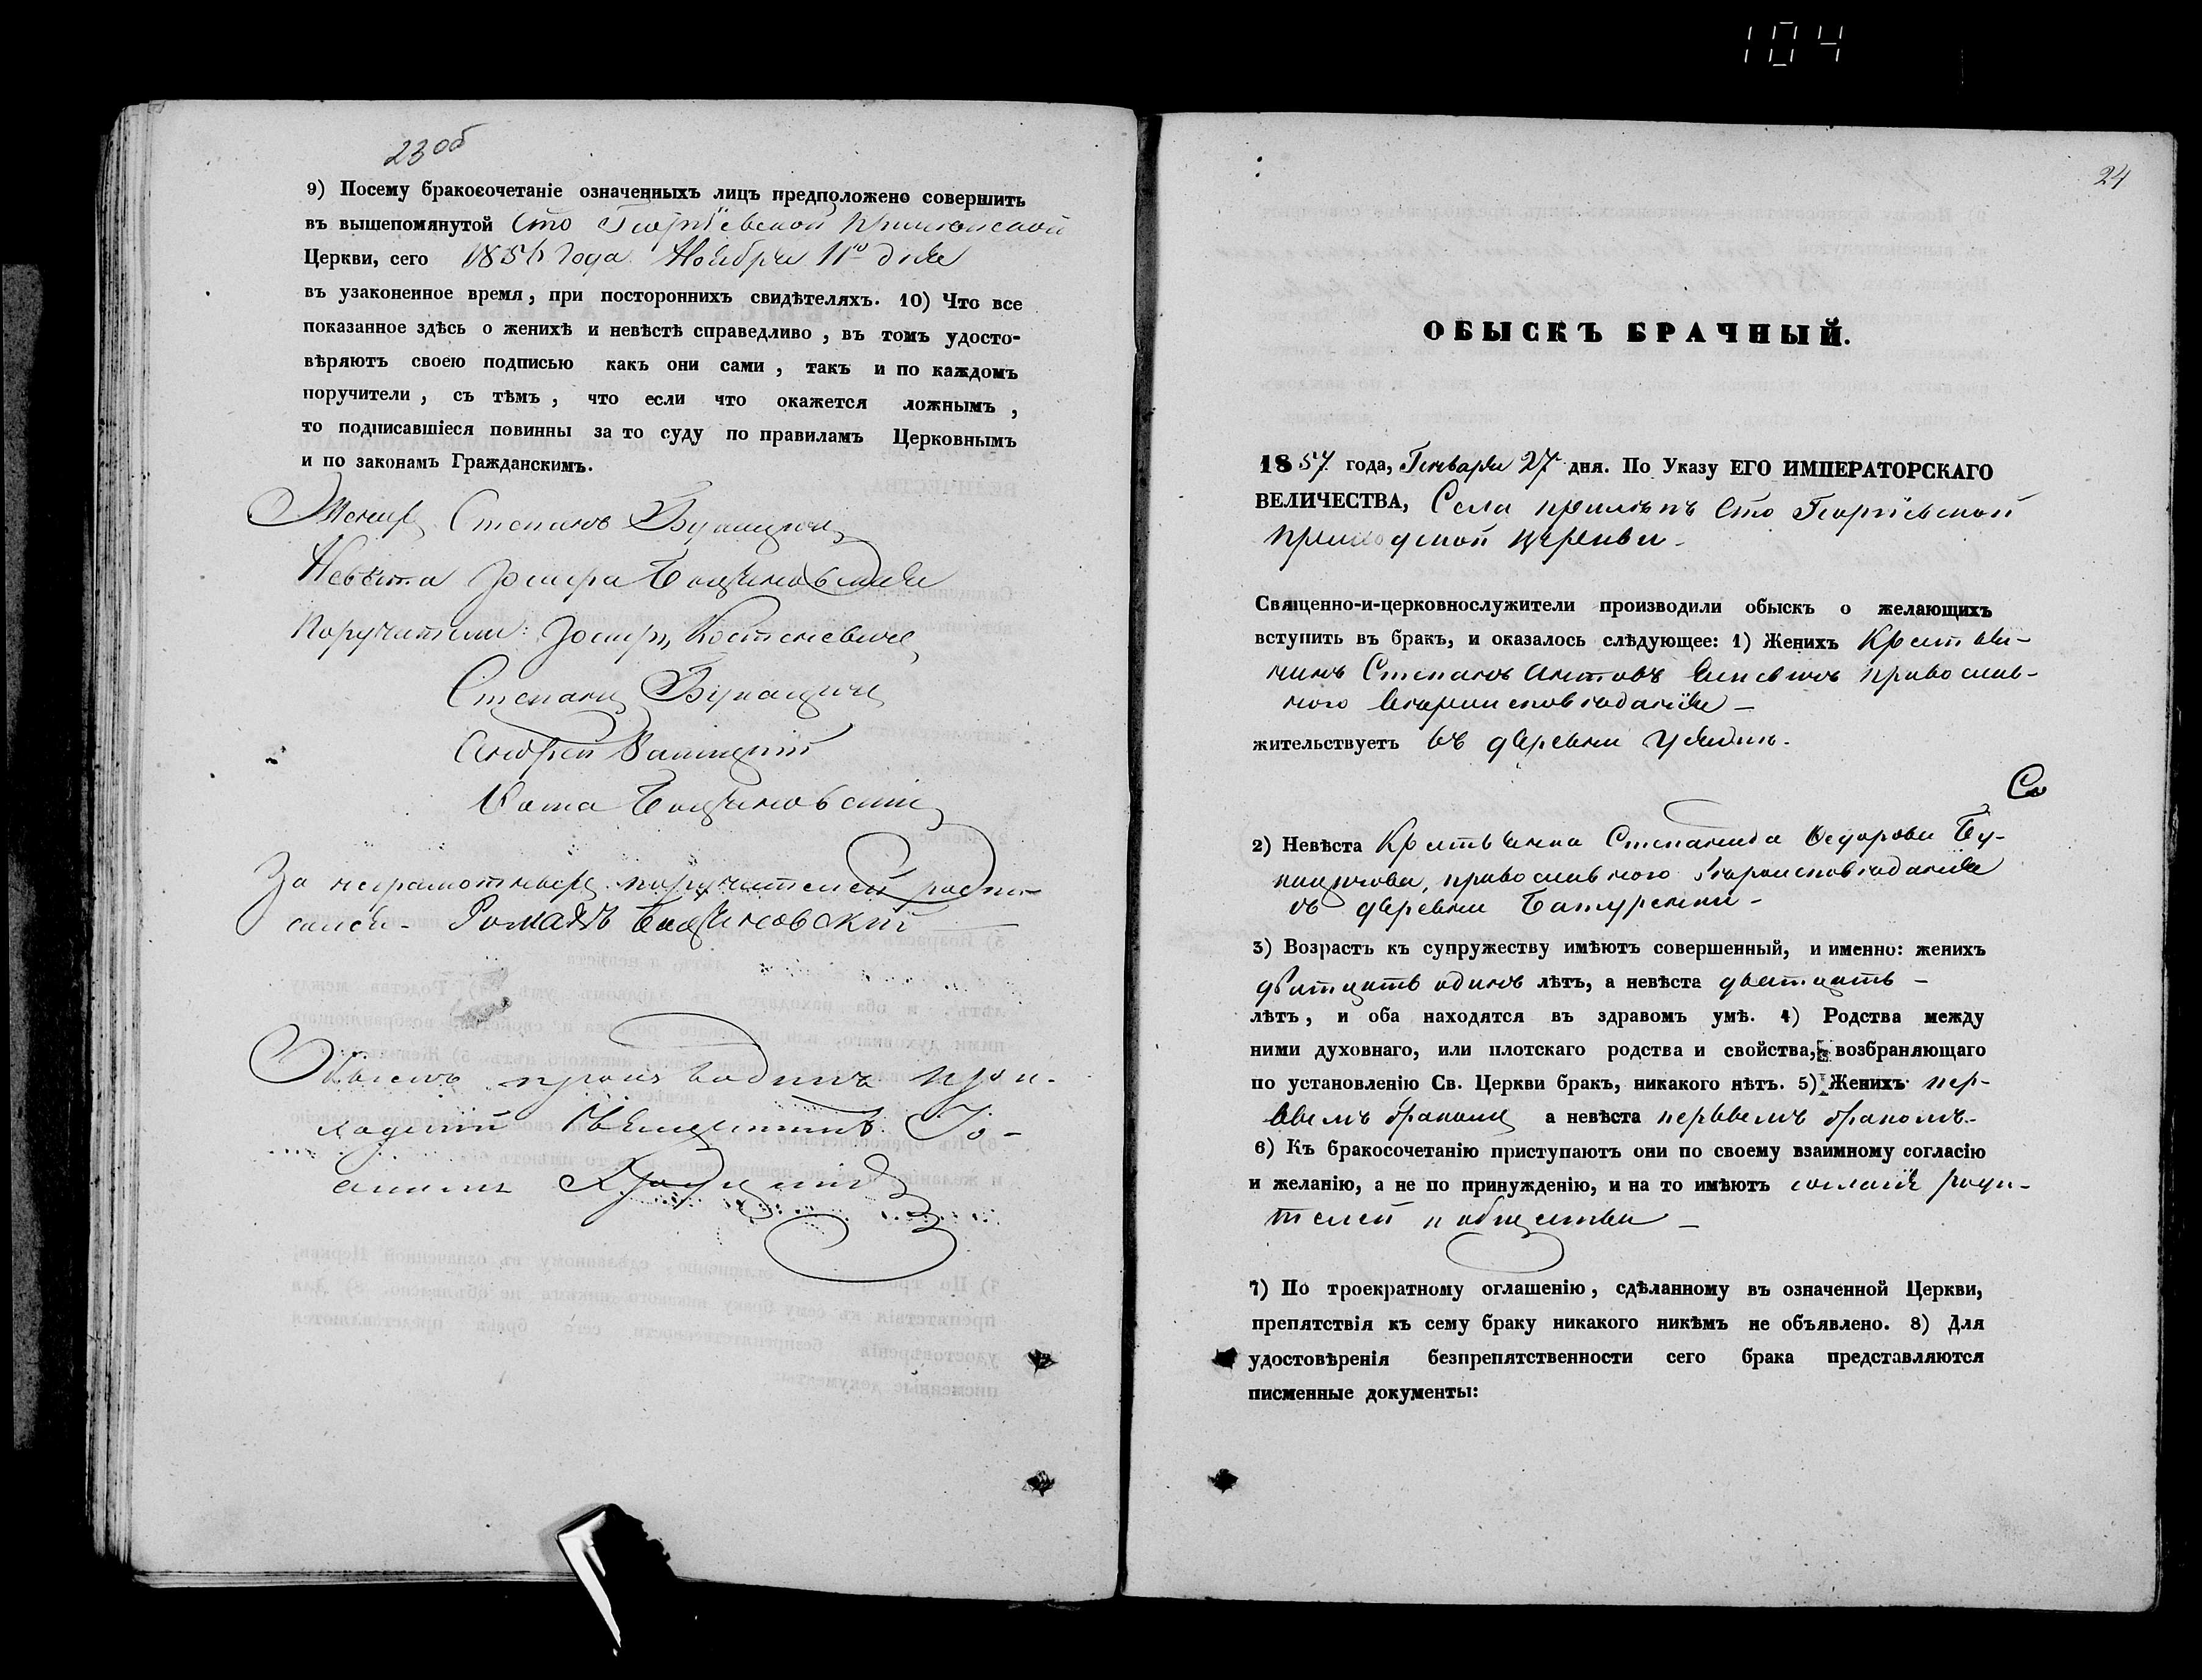 104
23 об
9) Посему бракосочетаніе означенныхъ лицъ предположено совершить
въ вышепомянутой Сто Георгіевской
Церкви, сего 1856 года Ноября 11го дня
въ узаконенное время, при постороннихъ свидѣтеляхъ. 10) Что все
показанное здѣсь о женихѣ и невѣстѣ справедливо, въ томъ удосто-
вѣряютъ своею подписью какъ они сами, такъ и по каждомъ
поручители, съ тѣмъ, что если что окажется ложнымъ,
то подписавшіеся повинны за то суду по правиламъ Церковнымъ
и по законамъ Гражданскимъ.
Женихъ Степанъ
Невѣста
Поручители: Костеневичъ
Степанъ
Андрей
Фома
За неграмотныхъ поручителей роспи-
сался Романъ
Обыскъ производилъ при-
ходскій Священникъ Іо-
аннъ
24
ОБЫСКЪ БРАЧНЫЙ.
1857 года, Генваря 27 дня. По Указу ЕГО ИМПЕРАТОРСКАГО
ВЕЛИЧЕСТВА, Села Прилѣпъ Сто Георгіевской
приходской церкви
Священно-и-церковнослужители производили обыскъ о желающихъ
вступить въ бракъ, и оказалось слѣдующее: 1) Женихъ Крестья-
нинъ Степанъ православ-
ного вѣроисповѣданія
жительствуетъ въ деревни
2) Невѣста Крестьянка Степанида Ѳедорова
православного вѣроисповѣданія
въ деревни
3) Возрастъ къ супружеству имѣютъ совершенный, и именно: женихъ
дватцать одинъ лѣтъ, а невѣста дватцать
лѣтъ, и оба находятся въ здравомъ умѣ. 4) Родства между
ними духовнаго, или плотскаго родства и свойства, возбраняющаго
по установленію Св. Церкви бракъ, никакого нѣтъ. 5) Женихъ пер-
вымъ бракомъ а невѣста первымъ бракомъ.
6) Къ бракосочетанію приступаютъ они по своему взаимному согласію
и желанію, а не по принужденію, и на то имѣютъ согласіе роди-
телей и общества
7) По троекратному оглашенію, сдѣланному въ означенной Церкви,
препятствія къ сему браку никакого никѣмъ не объявлено. 8) Для
удостовѣренія безпрепятственности сего брака представляются
писменные документы: